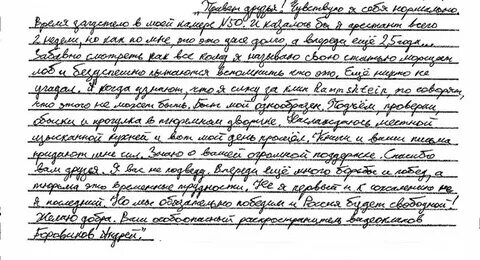 "Привет друзья! Чувствую я себя нормально.
Время загустело в моей камере №50. И казалось бы, я арестант всего
2 недели, но как по мне, это уже долго, а впереди ещё 2,5 года...
Забавно смотреть как все кому я называю свою статью морщат
лоб и безуспешно пытаются вспомнить что это. Ещё никто не
угадал. А когда узнают, что я сижу за клип Rammstein, то говорят,
что этого не может быть. Быт мой однообразен. Подъём, проверки,
обыски и прогулка в тюремном дворике. Наслаждаюсь местной
изысканной кухней и вот мой день прошёл. Книги и ваши письма
придают мне сил. Знаю о вашей огромной поддержке. Спасибо
вам друзья. Я вас не подведу. Впереди ещё много борьбы и побед, а
тюрьма это временные трудности. Не я первый и к сожалению не
я последний. Но мы обязательно победим и Россия будет свободной!
Желаю добра. Ваш особоопасный распространитель видеоклипов
Боровиков Андрей."